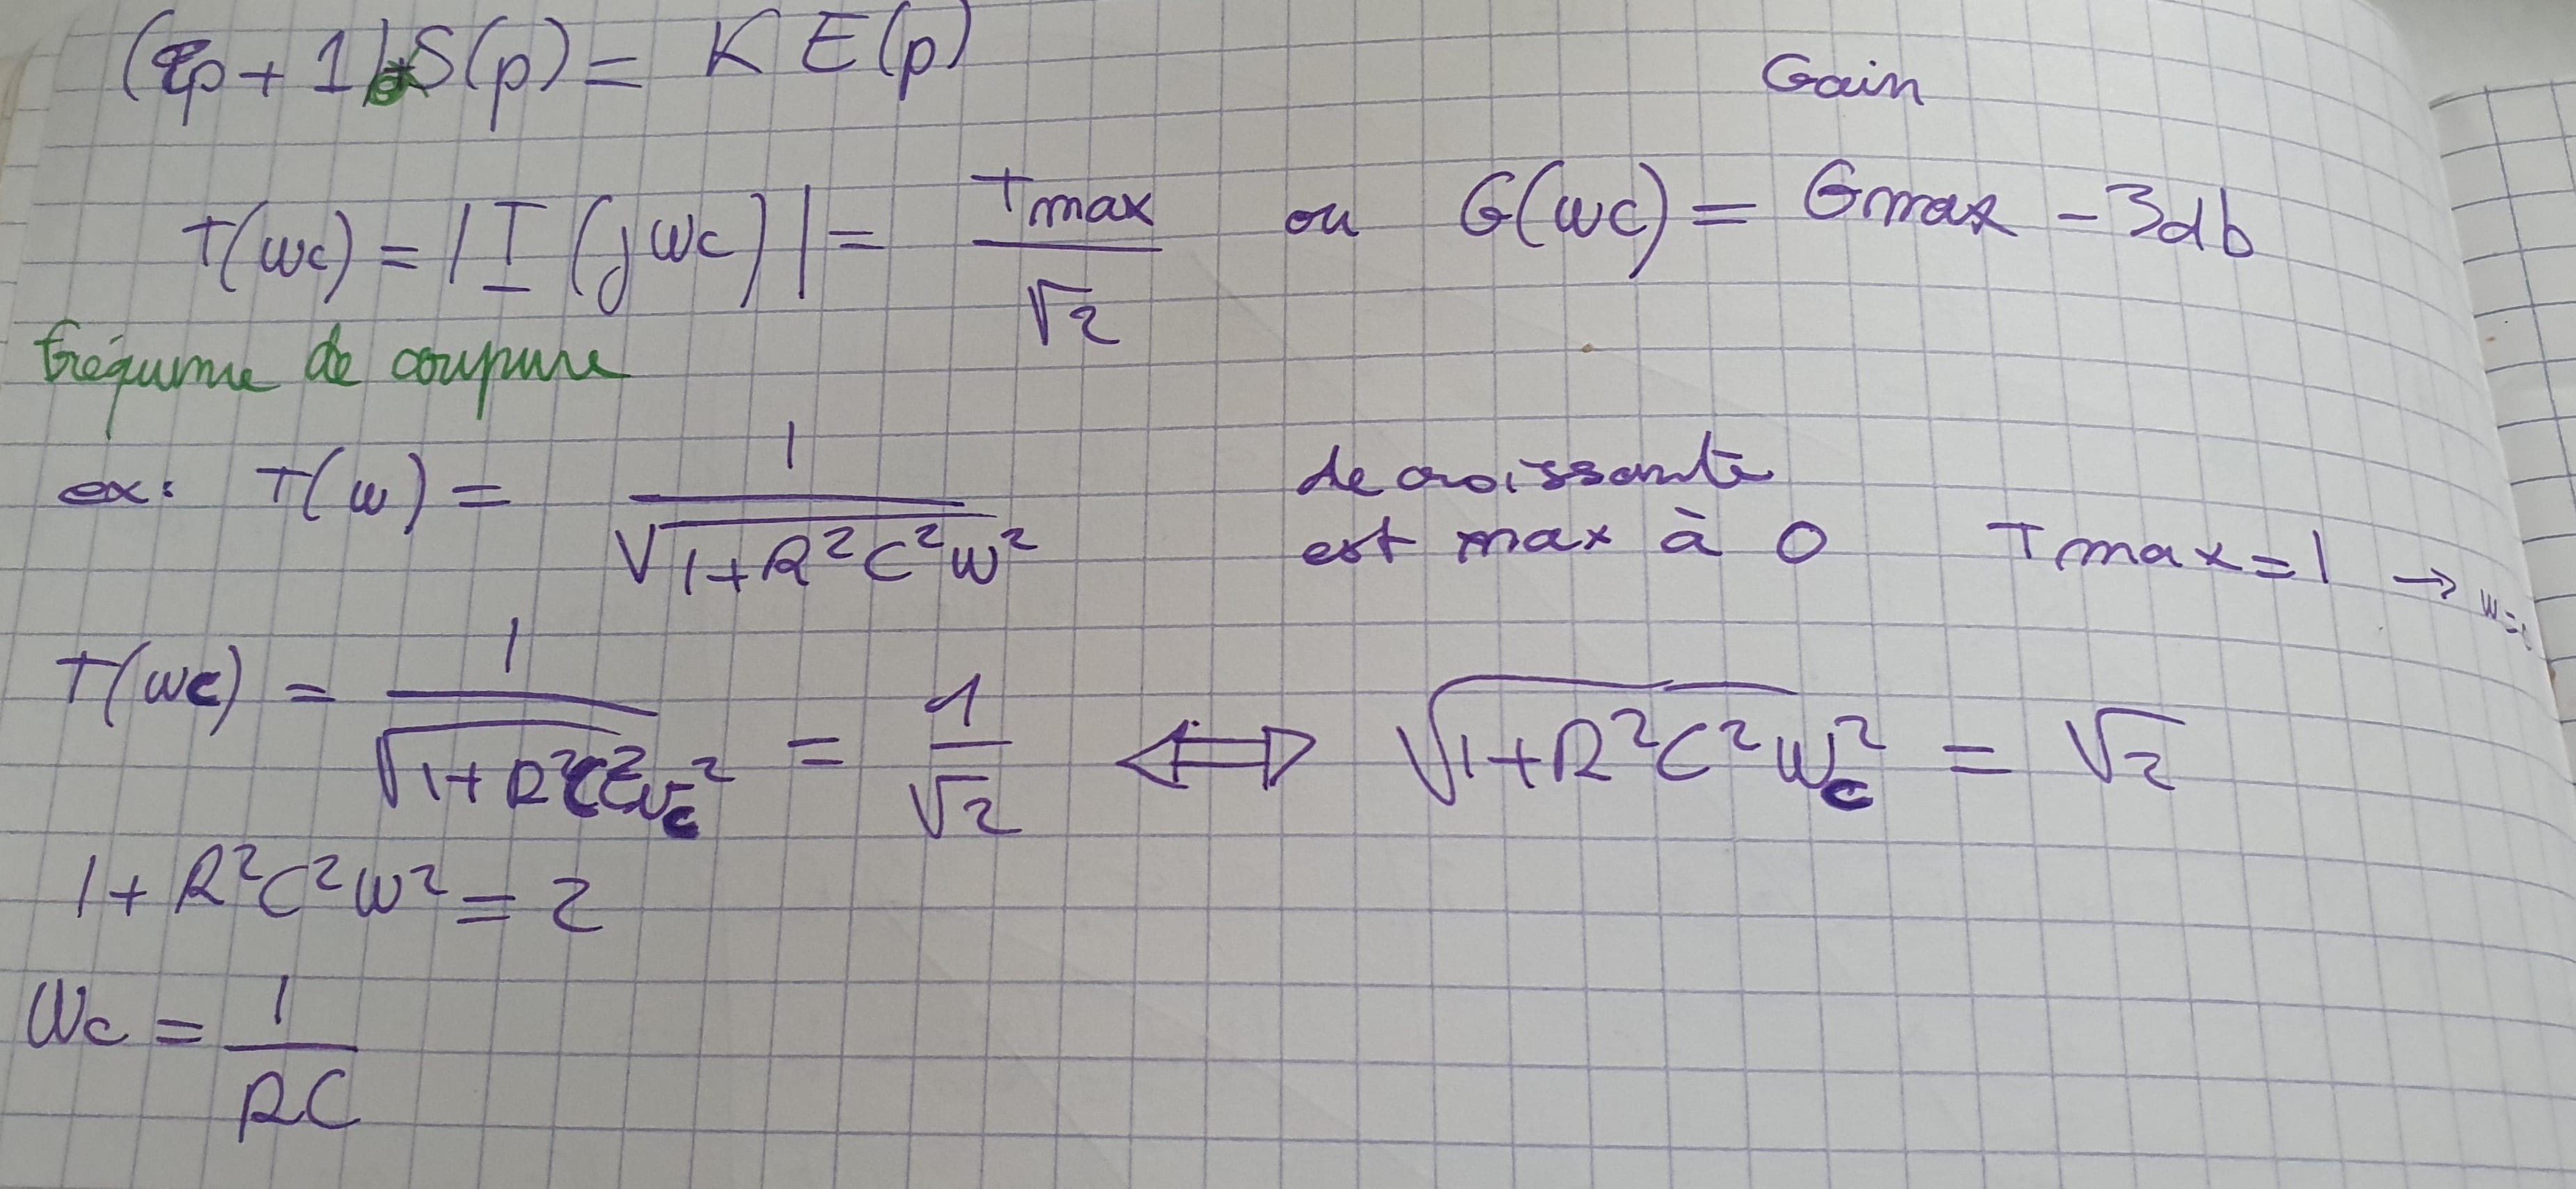 (τp + 1) S(p) = K E(p)
Gain
T(ωc) = |T(jωc)| = Tmax/√2 ou G(ωc) = Gmax - 3db
fréquence de coupure
ex: T(ω) = 1/√(1+R²C²ω²) decroissante
est max à 0 Tmax = 1 →
T(ωc) = 1/√(1+R²C²ωc²) = 1/√2 ⟺ √(1+R²C²ωc²) = √2
1 + R²C²ω² = 2
ωc = 1/RC